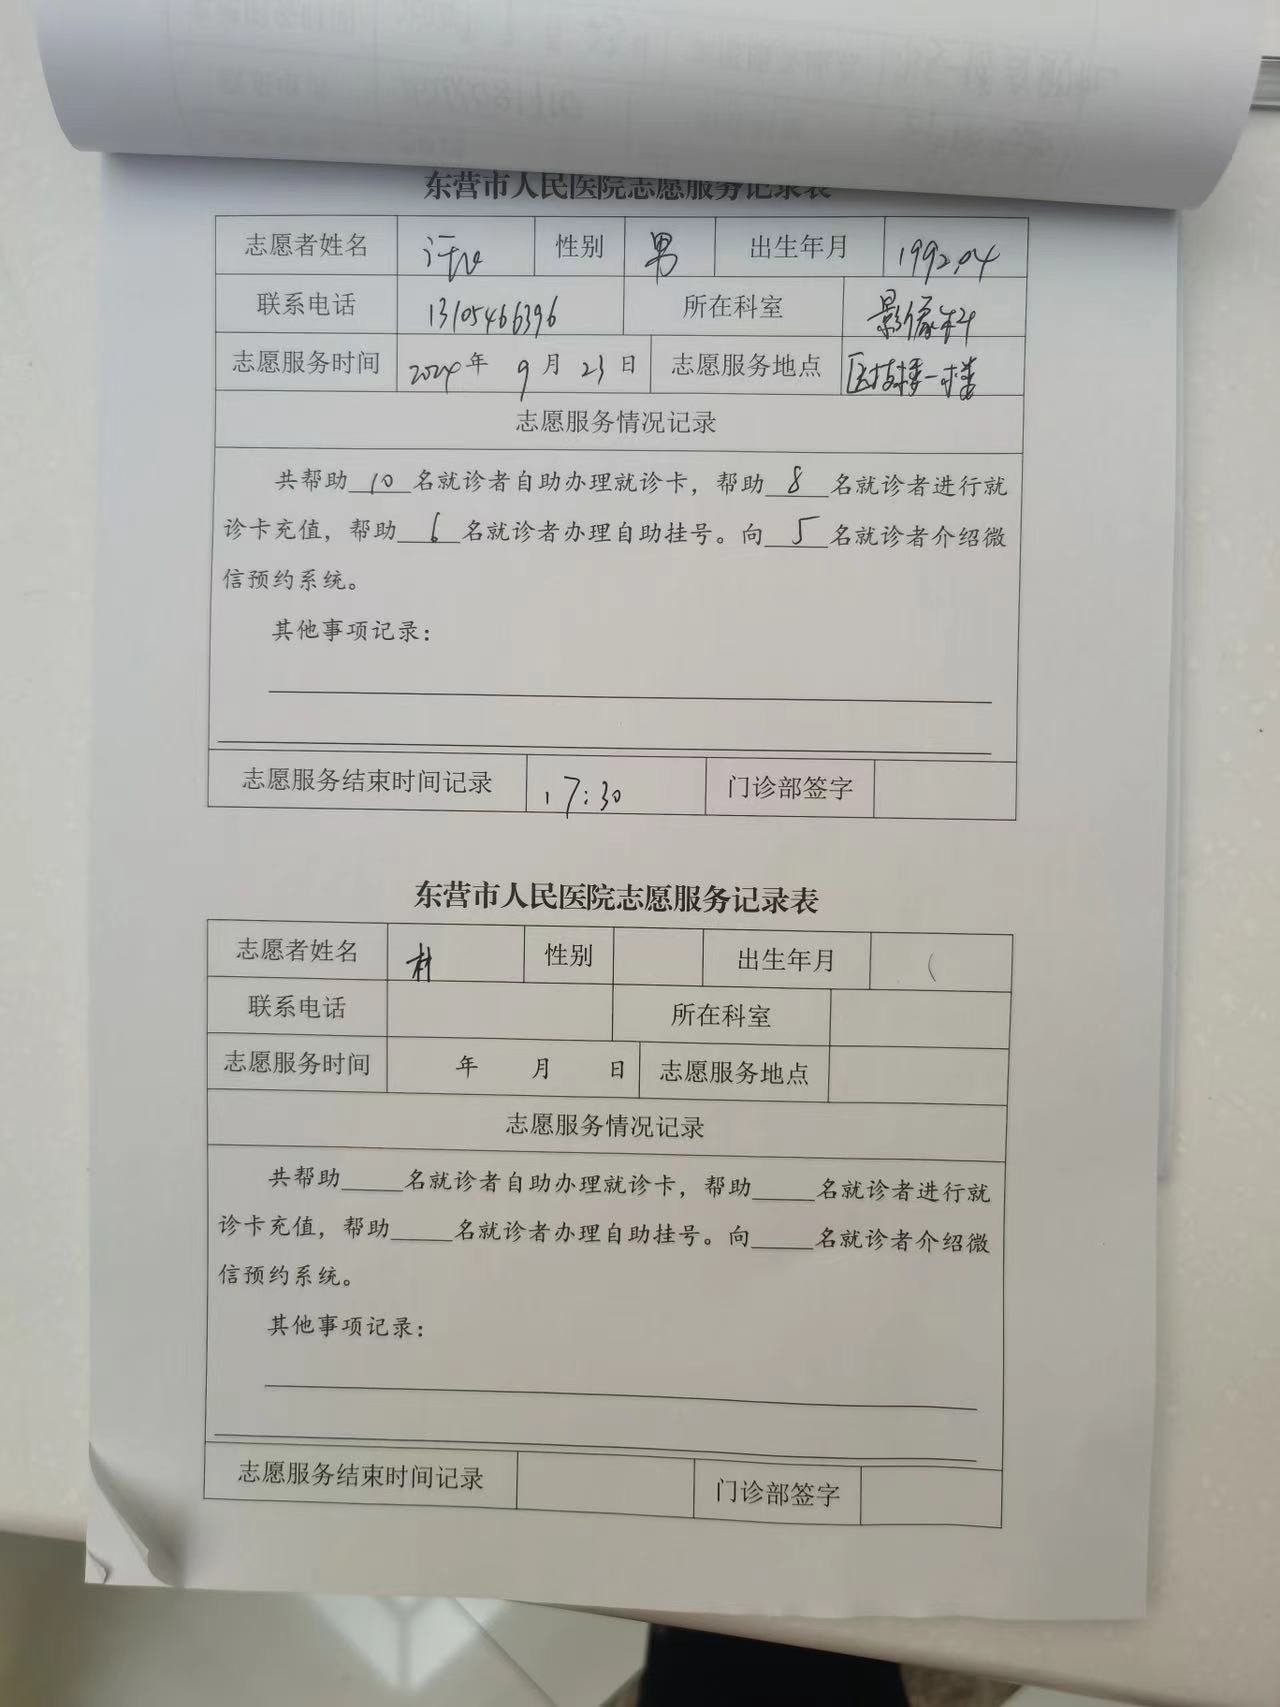 东营市人民医院志愿服务记录表
志愿者姓名 性别 男 出生年月 1992.04
联系电话 13105466396 所在科室 影像科
志愿服务时间 2024年 9月 23日 志愿服务地点 医技楼一楼
志愿服务情况记录
共帮助 10 名就诊者自助办理就诊卡，帮助 8 名就诊者进行就
诊卡充值，帮助 6 名就诊者办理自助挂号。向 5 名就诊者介绍微
信预约系统。
其他事项记录：
志愿服务结束时间记录 17:30 门诊部签字
东营市人民医院志愿服务记录表
志愿者姓名 性别 出生年月
联系电话 所在科室
志愿服务时间 年 月 日 志愿服务地点
志愿服务情况记录
共帮助_____名就诊者自助办理就诊卡，帮助_____名就诊者进行就
诊卡充值，帮助_____名就诊者办理自助挂号。向_____名就诊者介绍微
信预约系统。
其他事项记录：
志愿服务结束时间记录 门诊部签字